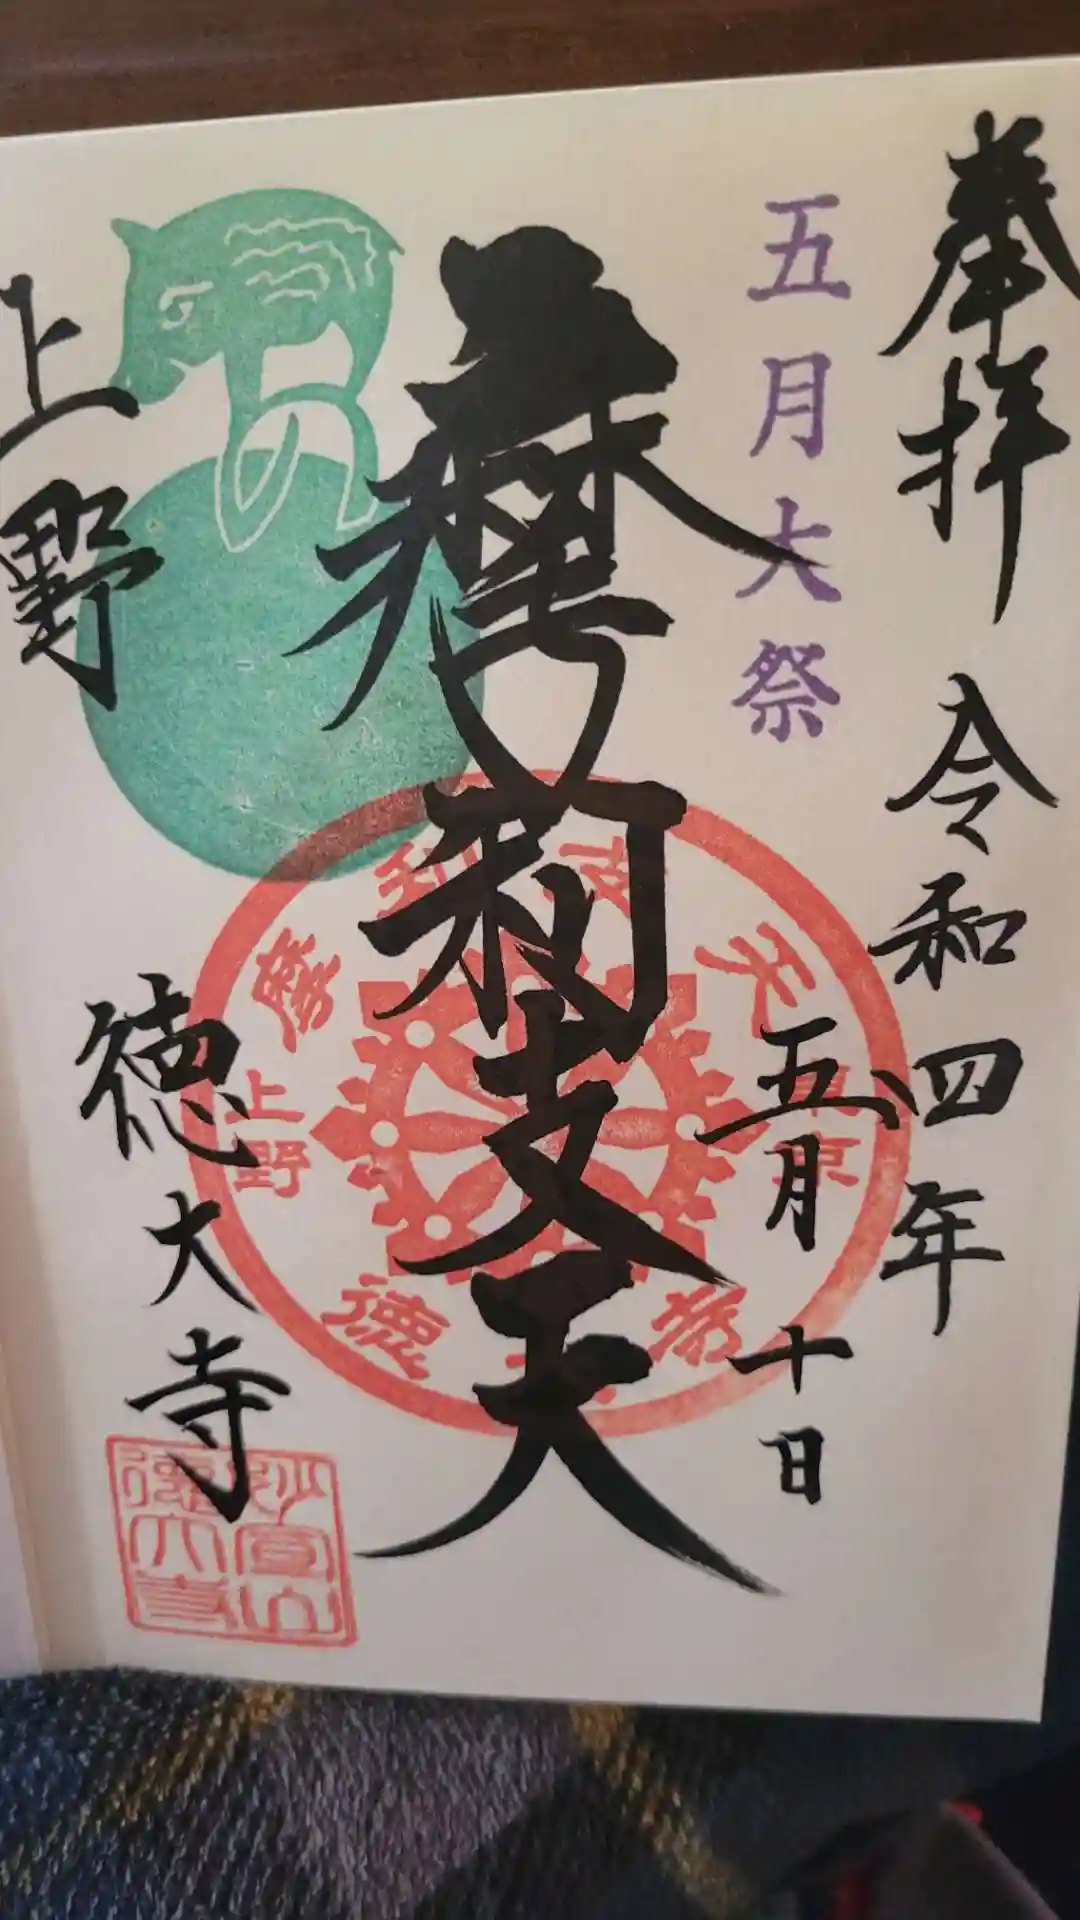 奉拝
令和四年
五月十日
五月大祭
摩利支天
上野
徳大寺
摩利支天
東京
上野
徳大寺
妙宣山
徳大寺